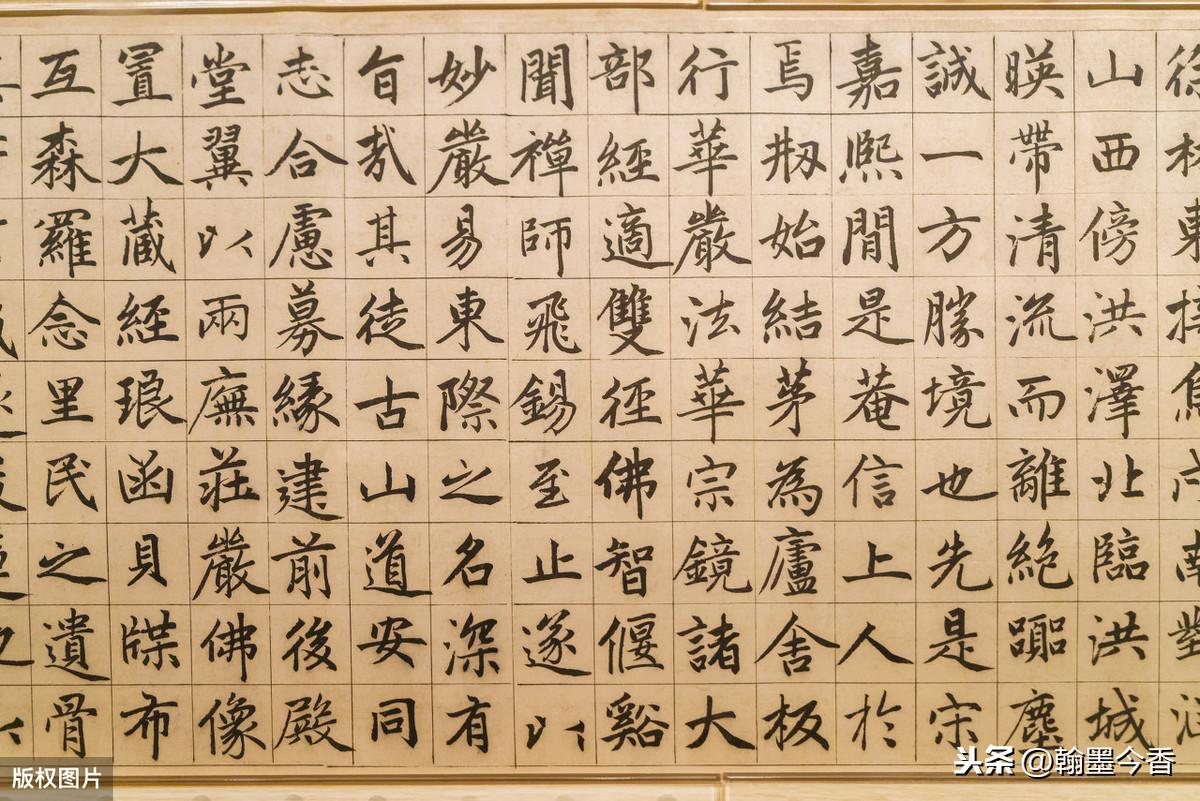 山西傍洪澤北臨洪城
暎帶清流而離絕塵
誠一方勝境也先是宋
嘉熙閒是菴信上人於
焉剏始結茅為廬舍板
行華嚴法華宗鏡諸大
部經適雙徑佛智偃谿
聞禪師飛錫至止遂以
妙嚴易東際之名深有
旨哉其徒古山道安同
志合慮募緣建前後殿
堂翼以兩廡莊嚴佛像
置大藏經琅函貝牒布
互森羅念里民之遺骨
版权图片
头条 @翰墨今香